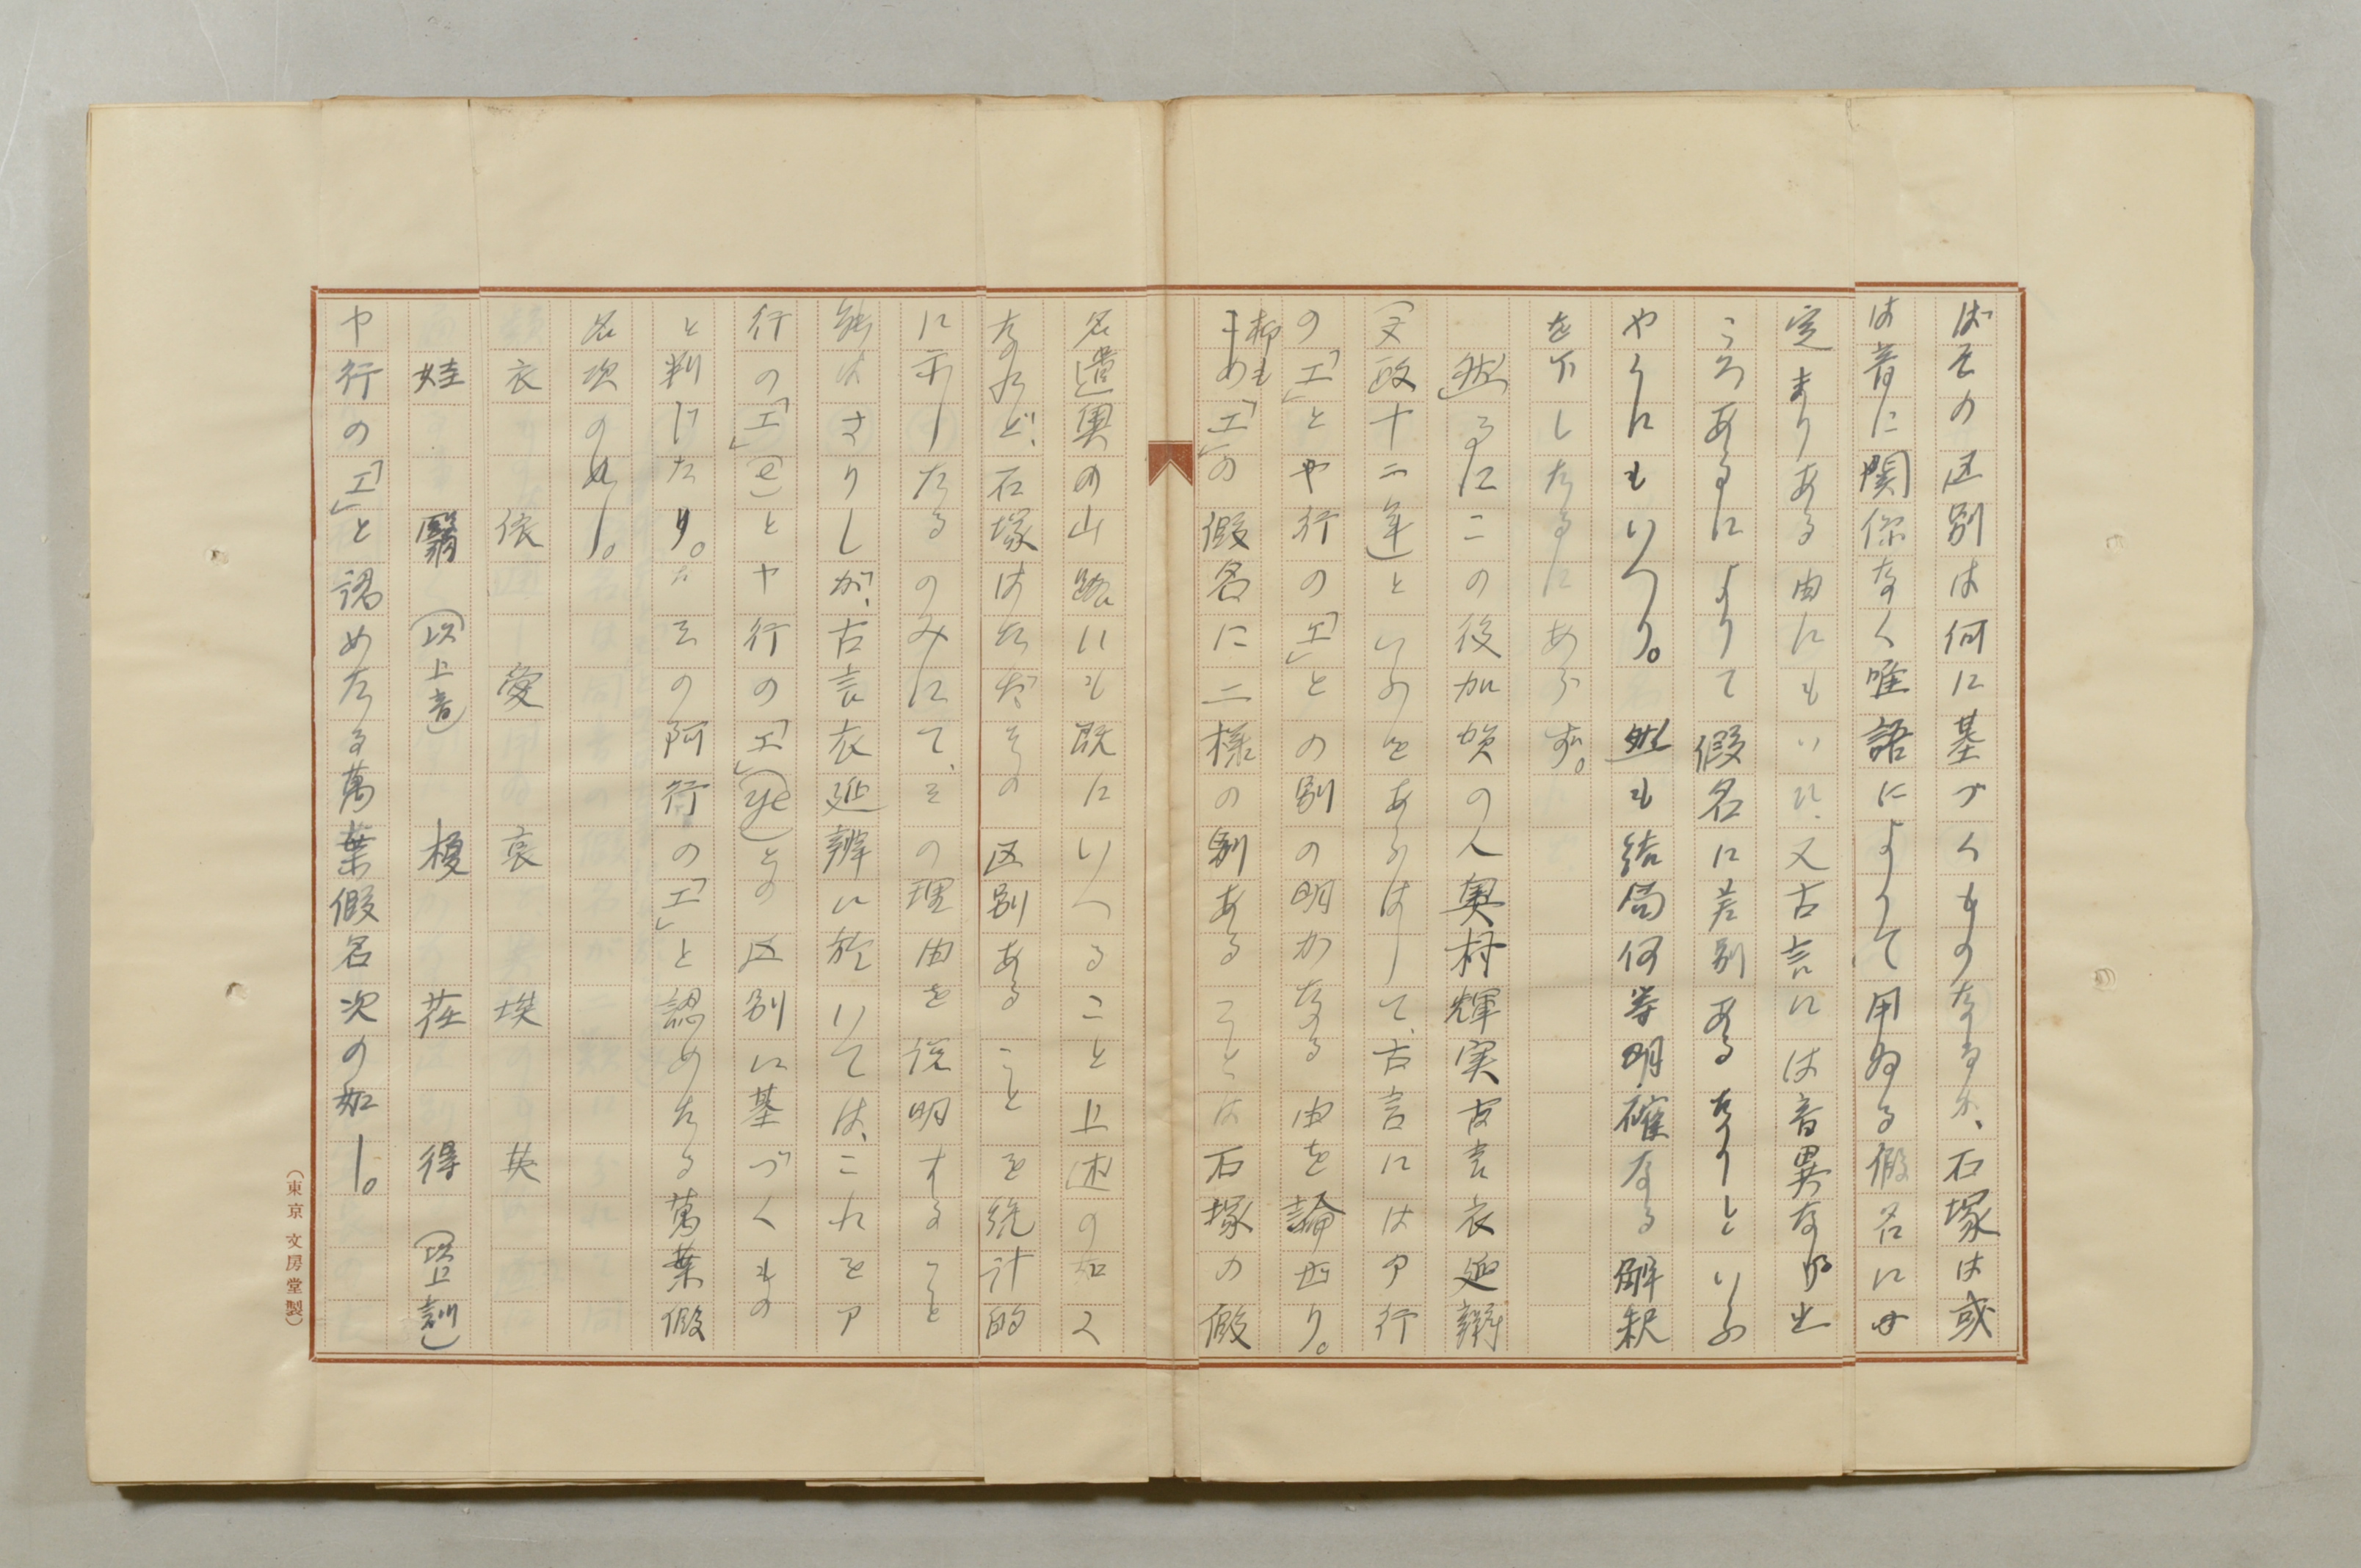 ばその区別は何に基づくものなるか、石塚は或
は音に関係なく唯語によりて用ゐる假名に
定まりある由にもいひ、又古言には音異なりし
ころあるによりて假名に差別あるなりといふ
やうにもいへり。然も結局何等明確なる解釈
を下したるにあらず。
然るにこの後加賀の人奥村輝実古言衣延辨
(文政十二年)といふをあらはして、古言にはア行
の「エ」とヤ行の「エ」との別の明かなる由を論ぜり。
抑も「エ」の假名に二様の別あることは石塚の假
名遣奥の山路にも既にいへること上述の如く
なれど、石塚はただその区別あることを統計的
に示したるのみにて、その理由を説明すること
能はざりしが、古言衣延辨に於いては、これをア
行の「エ」(e)とヤ行の「エ」(ye)との区別に基づくもの
と判じたり。その阿行の「エ」と認めたる萬葉假
名次の如し。
衣 依 愛 哀 埃 英
娃 翳 (以上音) 榎 荏 得 (以上訓)
ヤ行の「エ」と認めたる萬葉假名次の如し。
(東京 文房堂製)